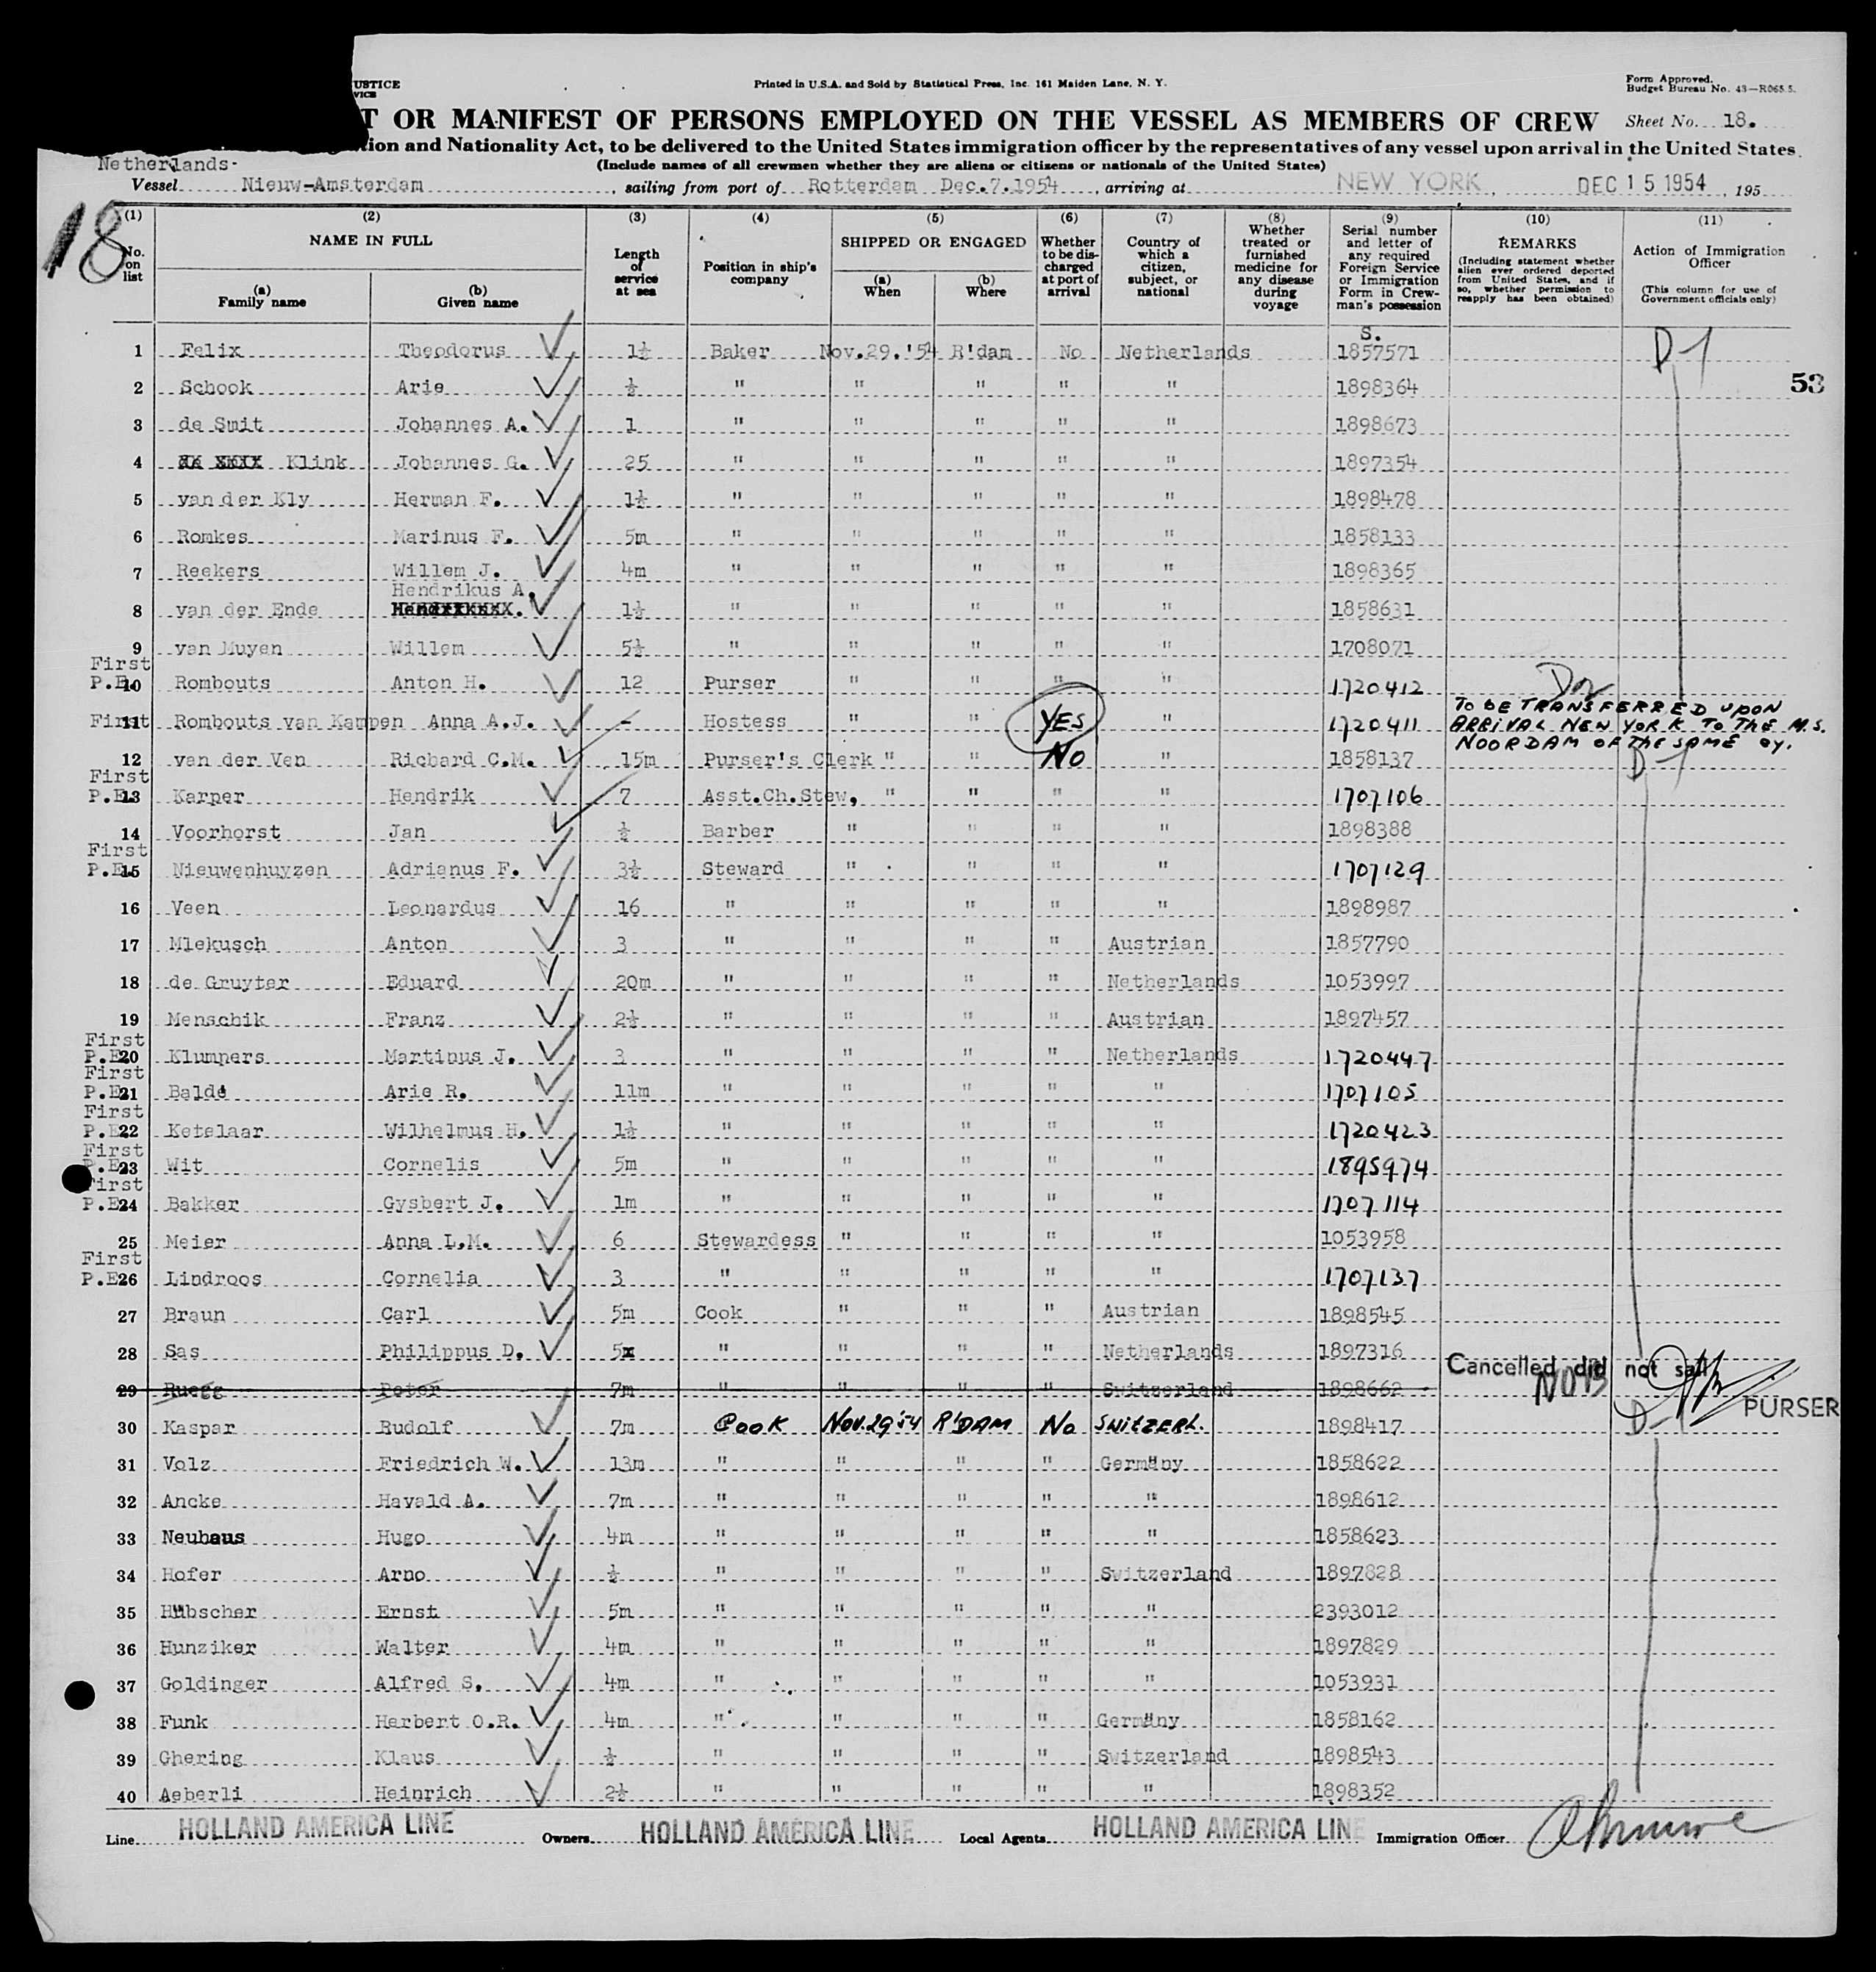 USTICE
VICE
Printed in U.S.A. and Sold by Statistical Press, Inc. 161 Maiden Lane, N. Y.
Form Approved.
Budget Bureau No. 43—R065.5.
T OR MANIFEST OF PERSONS EMPLOYED ON THE VESSEL AS MEMBERS OF CREW Sheet No. 18.
tion and Nationality Act, to be delivered to the United States immigration officer by the representatives of any vessel upon arrival in the United States.
(Include names of all crewmen whether they are aliens or citizens or nationals of the United States)
Netherlands-
Vessel Nieuw-Amsterdam, sailing from port of Rotterdam Dec.7.1954, arriving at NEW YORK, DEC 15 1954, 195
18
(1) (2) (3) (4) (5) (6) (7) (8) (9) (10) (11)
No. on list
NAME IN FULL
(a) Family name
(b) Given name
Length of service at sea
Position in ship's company
SHIPPED OR ENGAGED
(a) When
(b) Where
Whether to be discharged at port of arrival
Country of which a citizen, subject, or national
Whether treated or furnished medicine for any disease during voyage
Serial number and letter of any required Foreign Service or Immigration Form in Crewman's possession
REMARKS
(Including statement whether alien ever ordered deported from United States, and if so, whether permission to reapply has been obtained)
Action of Immigration Officer
(This column for use of Government officials only)
S.
1 Felix Theodorus 1½ Baker Nov.29.'54 R'dam No Netherlands 1857571 D-1
53
2 Schook Arie ½ " " " " " 1898364
3 de Smit Johannes A. 1 " " " " " 1898673
4 Klink Johannes G. 25 " " " " " 1897354
5 van der Kly Herman F. 1½ " " " " " 1898478
6 Romkes Marinus F. 5m " " " " " 1858133
7 Reekers Willem J. 4m " " " " " 1898365
Hendrikus A.
8 van der Ende 1½ " " " " " 1858631
9 van Muyen Willem 5½ " " " " " 1708071
First
P.E. 10 Rombouts Anton H. 12 Purser " " " " 1720412
First 11 Rombouts van Kampen Anna A.J. - Hostess " " YES " 1720411 To BE TRANSFERRED UPON
ARRIVAL NEW YORK TO THE M.S.
NOORDAM OF THE SAME Cy.
12 van der Ven Richard C.M. 15m Purser's Clerk " " No " 1858137 D-1
First
P.E. 13 Karper Hendrik 7 Asst.Ch.Stew. " " " " 1707106
14 Voorhorst Jan ½ Barber " " " " 1898388
First
P.E. 15 Nieuwenhuyzen Adrianus F. 3½ Steward " " " " 1707129
16 Veen Leonardus 16 " " " " " 1898987
17 Mlekusch Anton 3 " " " " Austrian 1857790
18 de Gruyter Eduard 20m " " " " Netherlands 1053997
19 Menschik Franz 2½ " " " " Austrian 1897457
First
P.E. 20 Klumpers Martinus J. 3 " " " " Netherlands 1720447
First
P.E. 21 Baldé Arie R. 11m " " " " " 1707105
First
P.E. 22 Ketelaar Wilhelmus H. 1½ " " " " " 1720423
First
P.E. 23 Wit Cornelis 5m " " " " " 1895974
First
P.E. 24 Bakker Gysbert J. 1m " " " " " 1707114
25 Meier Anna L.M. 6 Stewardess " " " " 1053958
First
P.E. 26 Lindroos Cornelia 3 " " " " " 1707137
27 Braun Carl 5m Cook " " " Austrian 1898545
28 Sas Philippus D. 5 " " " " Netherlands 1897316
Cancelled did not sail
29 Ruegg Peter 7m " " " " Switzerland 1898662
PURSER
30 Kaspar Rudolf 7m Cook Nov.29'54 R'DAM No SWITZERL. 1898417 D-1
31 Volz Friedrich W. 13m " " " " Germany 1858622
32 Ancke Havald A. 7m " " " " " 1898612
33 Neuhaus Hugo 4m " " " " " 1858623
34 Hofer Arno ½ " " " " Switzerland 1897828
35 Hübscher Ernst 5m " " " " " 2393012
36 Hunziker Walter 4m " " " " " 1897829
37 Goldinger Alfred S. 4m " " " " " 1053931
38 Funk Herbert O.R. 4m " " " " Germany 1858162
39 Ghering Klaus ½ " " " " Switzerland 1898543
40 Aeberli Heinrich 2½ " " " " " 1898352
Line HOLLAND AMERICA LINE Owners HOLLAND AMERICA LINE Local Agents HOLLAND AMERICA LINE Immigration Officer